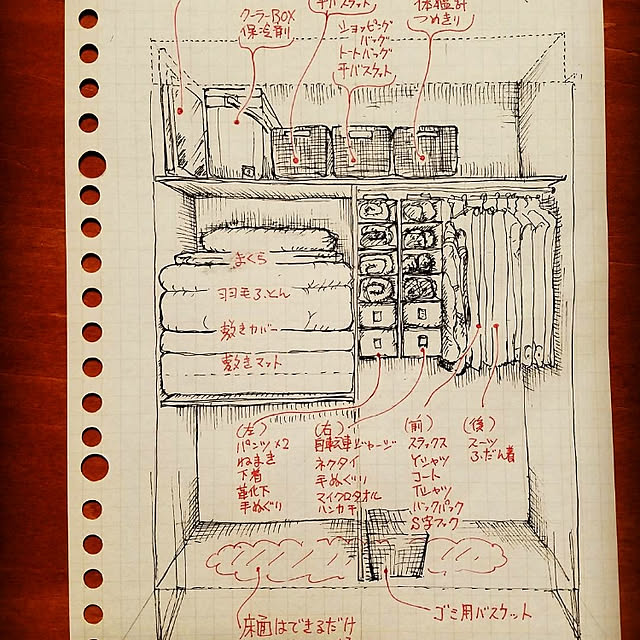 干バスケット
体温計
クーラーBOX
つめきり
保冷剤
ショッピング
バッグ
トートバッグ
干バスケット
まくら
羽毛ふとん
敷きカバー
敷きマット
(左)
パンツ×2
ねまき
下着
靴下
手ぬぐい
(右)
自転車ジャージ
ネクタイ
手ぬぐい
マイクロタオル
ハンカチ
(前)
スラックス
Yシャツ
コート
Tシャツ
バックパック
S字フック
(後)
スーツ
ふだん着
ゴミ用バスケット
床面はできるだけ